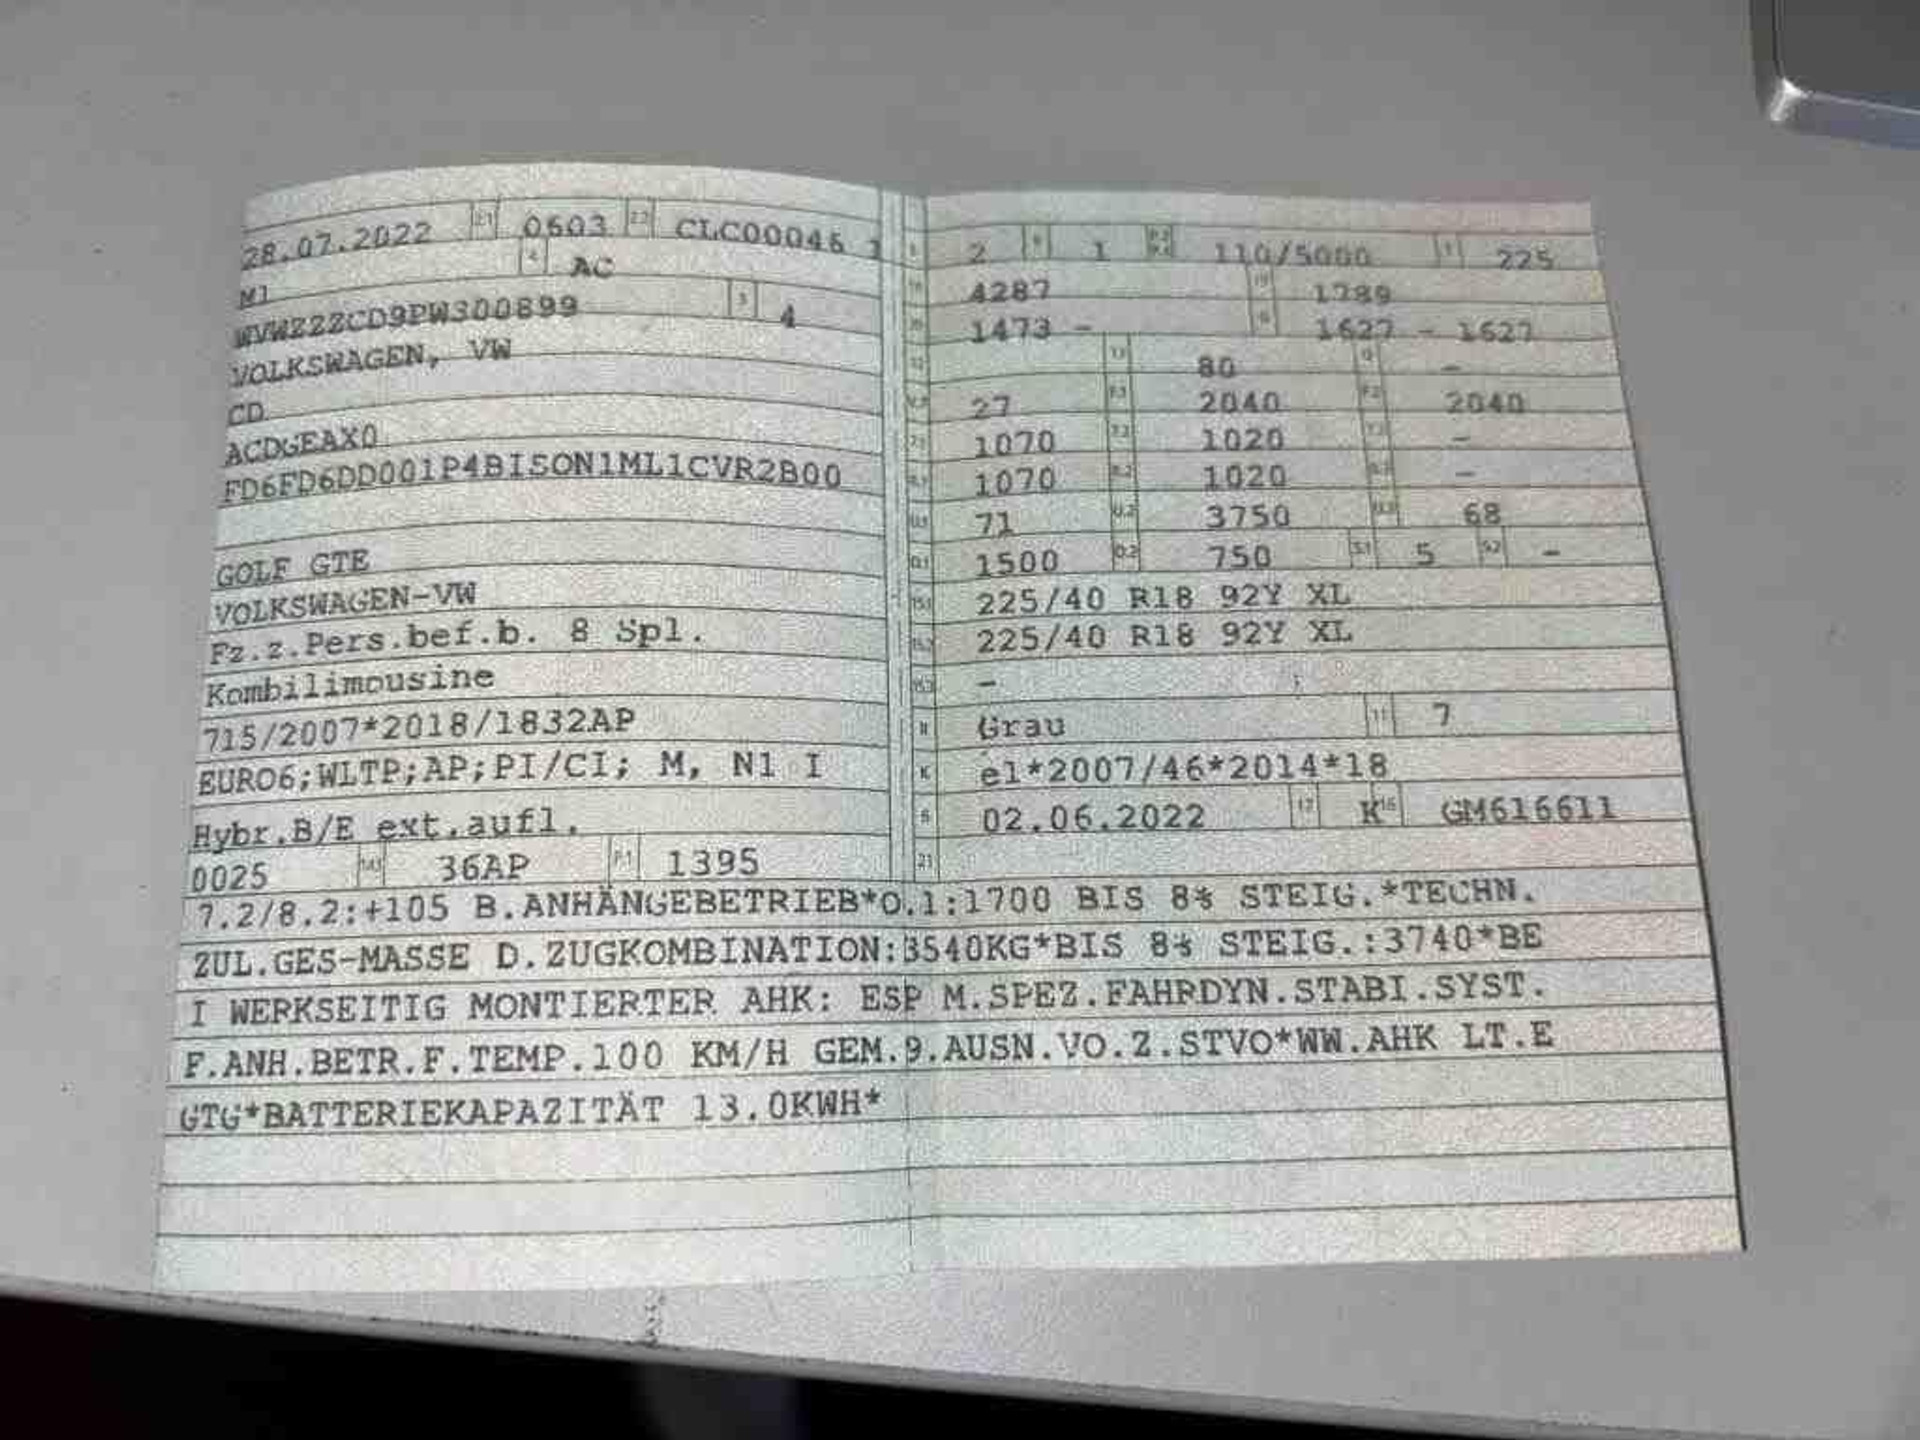 28.07.2022 2.1 0603 2.2 CLC00046 1
M1 4 AC
WVWZZZCD9PW300899 3 4
VOLKSWAGEN, VW
CD
ACDGEAX0
FD6FD6DD001P4BISON1ML1CVR2B00
GOLF GTE
VOLKSWAGEN-VW
Fz.z.Pers.bef.b. 8 Spl.
Kombilimousine
715/2007*2018/1832AP
EURO6;WLTP;AP;PI/CI; M, N1 I
Hybr.B/E ext.aufl.
0025 14.1 36AP P.1 1395
2 9 1 P.2 P.4 110/5000 T 225
18 4287 19 1789
20 1473 - G 1627 - 1627
12 13 80 Q -
V.7 27 F.1 2040 F.2 2040
7.1 1070 7.2 1020 7.3 -
8.1 1070 8.2 1020 8.3 -
U.1 71 U.2 3750 U.3 68
O.1 1500 O.2 750 S.1 5 S.2 -
15.1 225/40 R18 92Y XL
15.2 225/40 R18 92Y XL
15.3 -
R Grau 11 7
K e1*2007/46*2014*18
6 02.06.2022 17 K 16 GM616611
21
7.2/8.2:+105 B.ANHÄNGEBETRIEB*O.1:1700 BIS 8% STEIG.*TECHN.
ZUL.GES-MASSE D.ZUGKOMBINATION:3540KG*BIS 8% STEIG.:3740*BE
I WERKSEITIG MONTIERTER AHK: ESP M.SPEZ.FAHRDYN.STABI.SYST.
F.ANH.BETR.F.TEMP.100 KM/H GEM.9.AUSN.VO.Z.STVO*WW.AHK LT.E
GTG*BATTERIEKAPAZITÄT 13.0KWH*